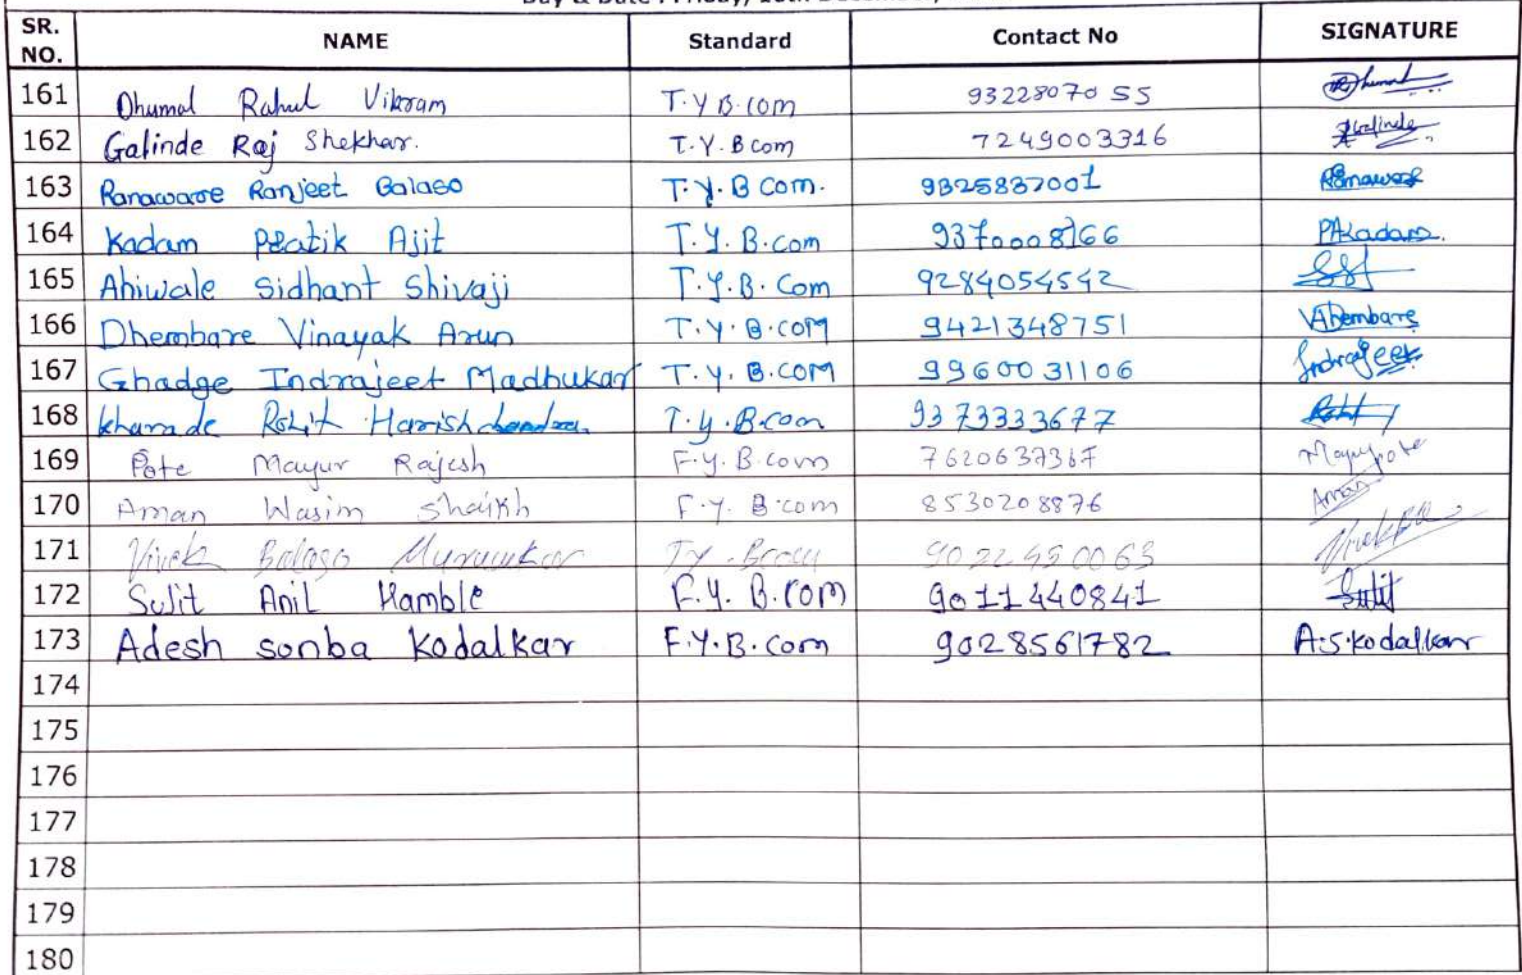 SR. NO. NAME Standard Contact No SIGNATURE
161 Dhumal Rahul Vikram T.Y B.com 9322807055 Dhumal
162 Galinde Raj Shekhar. T.Y.B com 7249003316 Galinde
163 Ranaware Ranjeet Balaso T.Y.B Com. 9325837001 Ranaware
164 Kadam Pratik Ajit T.Y.B.com 9370008166 PAKadam.
165 Ahiwale Sidhant Shivaji T.Y.B.Com 9284054542
166 Dhembare Vinayak Arun T.Y.B.COM 9421348751 VAhembare
167 Ghadge Indrajeet Madhukar T.Y.B.COM 9960031106 Indrajeet
168 kharade Rohit Harishchandra. T.y.B.com 9373333677 Rohit
169 Pote Mayur Rajesh F.y.B.com 7620637367 Mayurpote
170 Aman Wasim Shaikh F.Y.B.com 8530208876 Aman
171 Vivek Balaso TY.Bcom 9022450063
172 Sujit Anil Kamble F.Y.B.com 9011440841 Sujit
173 Adesh sonba Kodalkar F.Y.B.com 9028561782 A.S.kodalkar
174
175
176
177
178
179
180